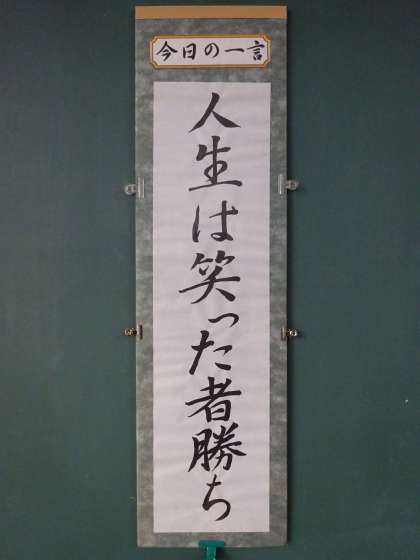 今日の一言
人生は笑った者勝ち